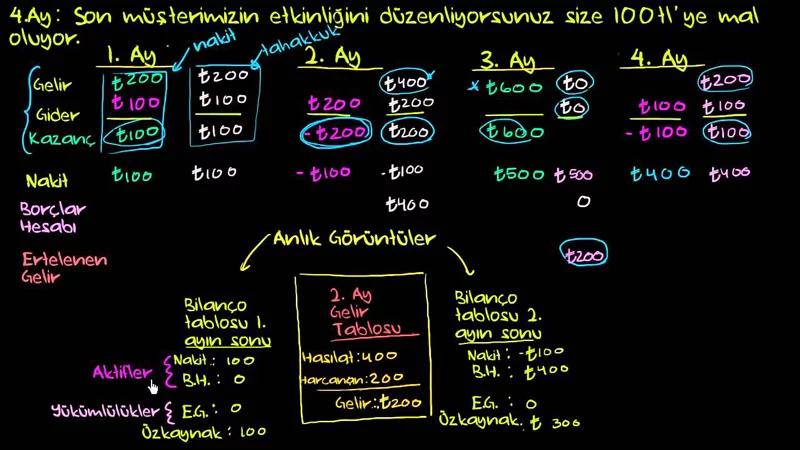 4.Ay: Son müşterimizin etkinliğini düzenliyorsunuz size 100tl'ye mal
oluyor.
nakit tahakkuk
1. Ay 2. Ay 3. Ay 4. Ay
Gelir ₺200 ₺200 ₺400 x ₺600 ₺0 ₺200
Gider ₺100 ₺100 ₺200 ₺200 ₺0 ₺100 ₺100
Kazanç ₺100 ₺100 -₺200 ₺200 ₺600 -₺100 ₺100
Nakit ₺100 ₺100 -₺100 -₺100 ₺500 ₺500 ₺400 ₺400
Borçlar
Hesabı ₺400 0
Ertelenen
Gelir ₺200
Anlık Görüntüler
Bilanço
tablosu 1.
ayın sonu
Aktifler
Nakit: 100
B.H. : 0
Yükümlülükler
E.G. : 0
Üzkaynak : 100
2. Ay
Gelir
Tablosu
Hasılat: 400
Harcanan: 200
Gelir: ₺200
Bilanço
tablosu 2.
ayın sonu
Nakit: -₺100
B.H. : ₺400
E.G. : 0
Üzkaynak. ₺ 300